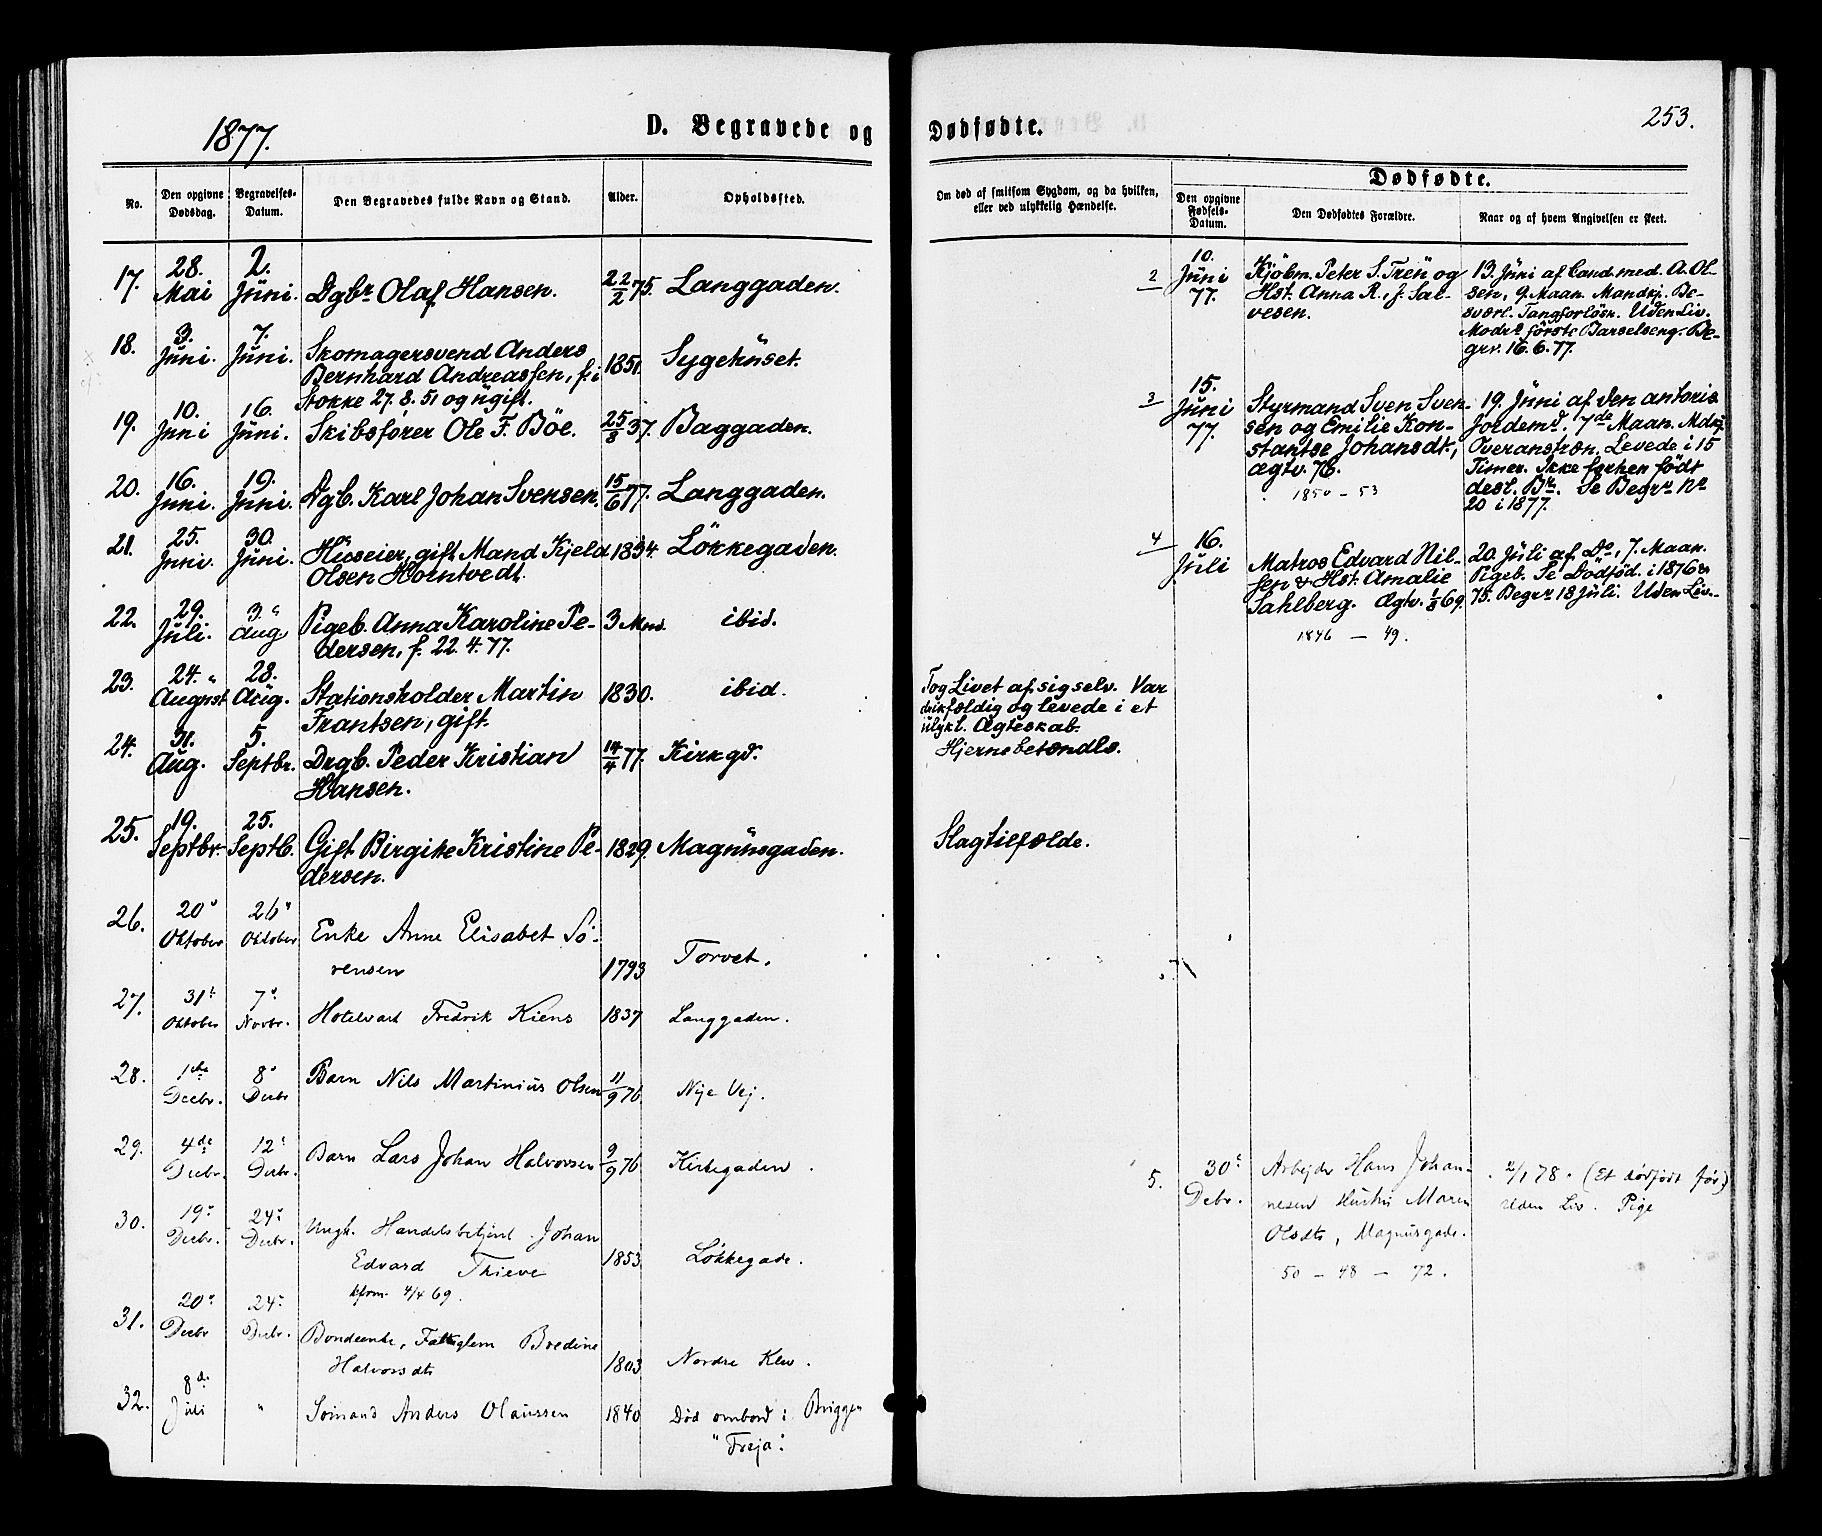 1877.
D. Begravede og
No.
Den opgivne Dødsdag.
Begravelses-Datum.
Den Begravedes fulde Navn og Stand.
Alder.
Opholdssted.
17. 28. Mai 2. Juni. Dgbr Olaf Hansen. 22/2 75. Langgaden.
18. 3. Juni. 7. Juni. Skomagersvend Anders 1851. Sygehuset.
Bernhard Andreassen, f. i
Stokke 27. 8. 51 og ugift.
19. 10. Juni 16. Juni. Skibsfører Ole F. Böe. 25/8 37. Baggaden.
20. 16. Juni. 19. Juni. Dgb. Karl Johan Svensen. 15/6 77. Langgaden.
21. 25. Juni. 30. Juni. Huseier, gift Mand Kjeld 1834. Lökkegaden.
Olsen Horntvedt.
22. 29. Juli. 3. Aug Pigeb. Anna Karoline Pe- 3 Mnd. ibid.
dersen, f. 22. 4. 77.
23. 24. August 28. Aug. Stationsholder Martin 1830. ibid.
Frantsen, gift.
24. 31. Aug. 5. Septbr. Drgb. Peder Kristian 14/4 77. Kirkgd.
Hansen.
25. 19. Septbr. 25. Septb. Gift Birgitte Kristine Pe- 1829. Magnusgaden.
dersen.
26. 20 Oktober 26 Oktober Enke Anne Elisabet Sö-
rensen 1793 Torvet.
27. 31 Oktober 7 Novbr. Hotelvært Fredrik Kiens 1837 Langgaden.
28. 1ste Decbr. 8 Decbr Barn Nils Martinius Olsen 11/9 76. Nije Vej.
29. 4de Decbr. 12 Decbr. Barn Lars Johan Halvorsen 9/9 76 Kirkegaden.
30. 19 Decbr. 24 Decbr. Ungk. Handelsbetjent Johan
Edvard Thieve 1853. Løkkegade.
kfrm. 4/4 69.
31. 20 Decbr 24 Decbr. Bondeenke, Fattiglem Bredine
Halvorsdtr 1803 Nordre Klev.
32. 8de Juli " Sömand Anders Olaussen 1840 Död ombord i Briggen
"Freja".
Dødfødte.
253.
Om død af smitsom Sygdom, og da hvilken, eller ved ulykkelig Hændelse.
Dødfødte.
Den opgivne Fødsels-Datum.
Den Dødfødtes Forældre.
Naar og af hvem Angivelsen er skeet.
2 10. Juni 77. Kjöbm. Peter S. Tren og
Hst. Anna R., f. Sal-
vesen.
13. Juni af Cand. med. A. Ol-
sen, 9. Maan. Mandkj. Be-
sværl. Tangforlösn. Uden Liv.
Modrs förste Barselseng. Be-
grv. 16. 6. 77.
3 15. Juni 77. Styrmand Sven Sven-
sen og Emilie Kon-
stantse Johansdt.,
ægtv. 76.
1850 - 53
19. Juni af den autoris
Jordemd. 7de Maan. Mdkj.
Overanstræn. Levede i 15
Timer. Ikke forhen födt
desl. Bn. Se Begrv No
20 i 1877.
4 16. Juli Matros Edvard Nil-
sen & Hst. Amalie
Sahlberg. Ægtv. 1/3 69.
1846 - 49.
20. Juli af Do, 7. Maan.
Pigeb. Se Dödföd. i 1876 &
75. Begrv 18 Juli. Uden Liv.
Tog Livet af sig selv. Var
drikfældig og levede i et
ulykl. Ægteskab.
Hjernebetændls.
Slagtilfælde.
5. 30 Debr. Arbejder Hans Johan-
nesen Hustru Maren
Olsdtr, Magnusgade.
50 - 48 - 72.
2/1 78. (Et dödfödt før)
Uden Liv. Pige